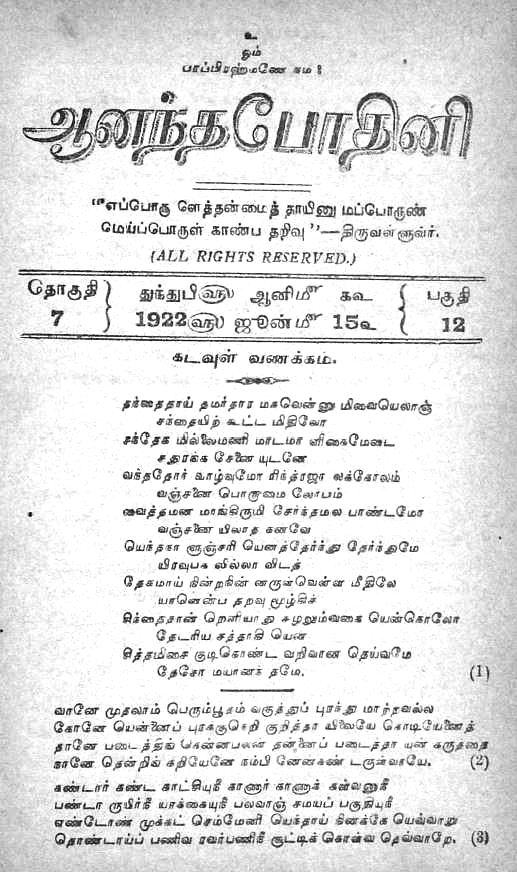 உ
ஓம்
பரப்பிரஹ்மணே நம :
ஆனந்தபோதினி
"எப்பொரு ளெத்தன்மைத் தாயினு மப்பொருண்
மெய்ப்பொருள் காண்ப தறிவு"—திருவள்ளுவர்.
(ALL RIGHTS RESERVED.)
தொகுதி 7
துந்துபி௵ ஆனி௴ ௧௳
1922௵ ஜூன்௴ 15௳
பகுதி 12
கடவுள் வணக்கம்.
தந்தைதாய் தமர்தார மகவென்னு மிவையெலாஞ்
சந்தையிற் கூட்ட மிதிலோ
சந்தேக மில்லைமணி மாடமா ளிகைமேடை
சதுரங்க சேனை யுடனே
வந்ததோர் வாழ்வுமோ ரிந்த்ரஜா லக்கோலம்
வஞ்சனை பொறாமை லோபம்
வைத்தமன மாங்கிருமி சேர்ந்தமல பாண்டமோ
வஞ்சனை யிலாத கனவே
யெந்தநா ளுஞ்சரி யெனத்தேர்ந்து தேர்ந்துமே
யிரவுபக லில்லா விடத்
தேகமாய் நின்றநின் னருள்வெள்ள மீதிலே
யானென்ப தறவு மூழ்கிச்
சிந்தைதான் றெளியாது சுழலும்வகை யென்கொலோ
தேடரிய சத்தாகி யென
சித்தமிசை குடிகொண்ட வறிவான தெய்வமே
தேசோ மயானந் தமே. (1)
வானே முதலாம் பெரும்பூதம் வகுத்துப் புரந்து மாற்றவல்ல
கோனே யென்னைப் புரக்குநெறி குறித்தா யிலையே கொடியேனைத்
தானே படைத்திங் கென்னபலன் தன்னைப் படைத்தா யுன் கருத்தை
நானே தென்றிங் கறியேனே நம்பி னேன்கண் டருள்வாயே. (2)
கண்டார் கண்ட காட்சியுநீ காணார் காணாக் கள்வனுநீ
பண்டா ருயிர்நீ யாக்கையுநீ பலவாஞ் சமயப் பகுதியுநீ
எண்டோண் முக்கட் செம்மேனி யெந்தாய் நினக்கே யெவ்வாறு
தொண்டாய்ப் பணிவ ரவர்பணிநீ சூட்டிக் கொள்வ தெவ்வாறே. (3)